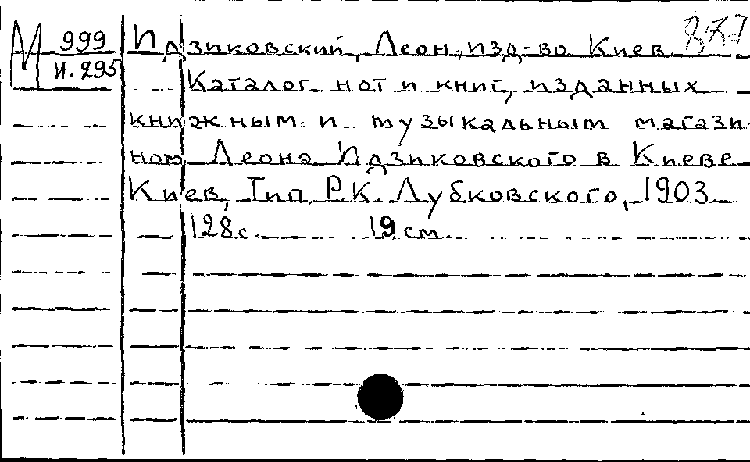 М 999 Идзиковский, Леон, изд-во Киев
И.295 Каталог нот и книг, изданных
книжным и музыкальным магази
ном Леона Идзиковского в Киеве
Киев, Тип. Р.К. Лубковского, 1903
128 с. 19 см.